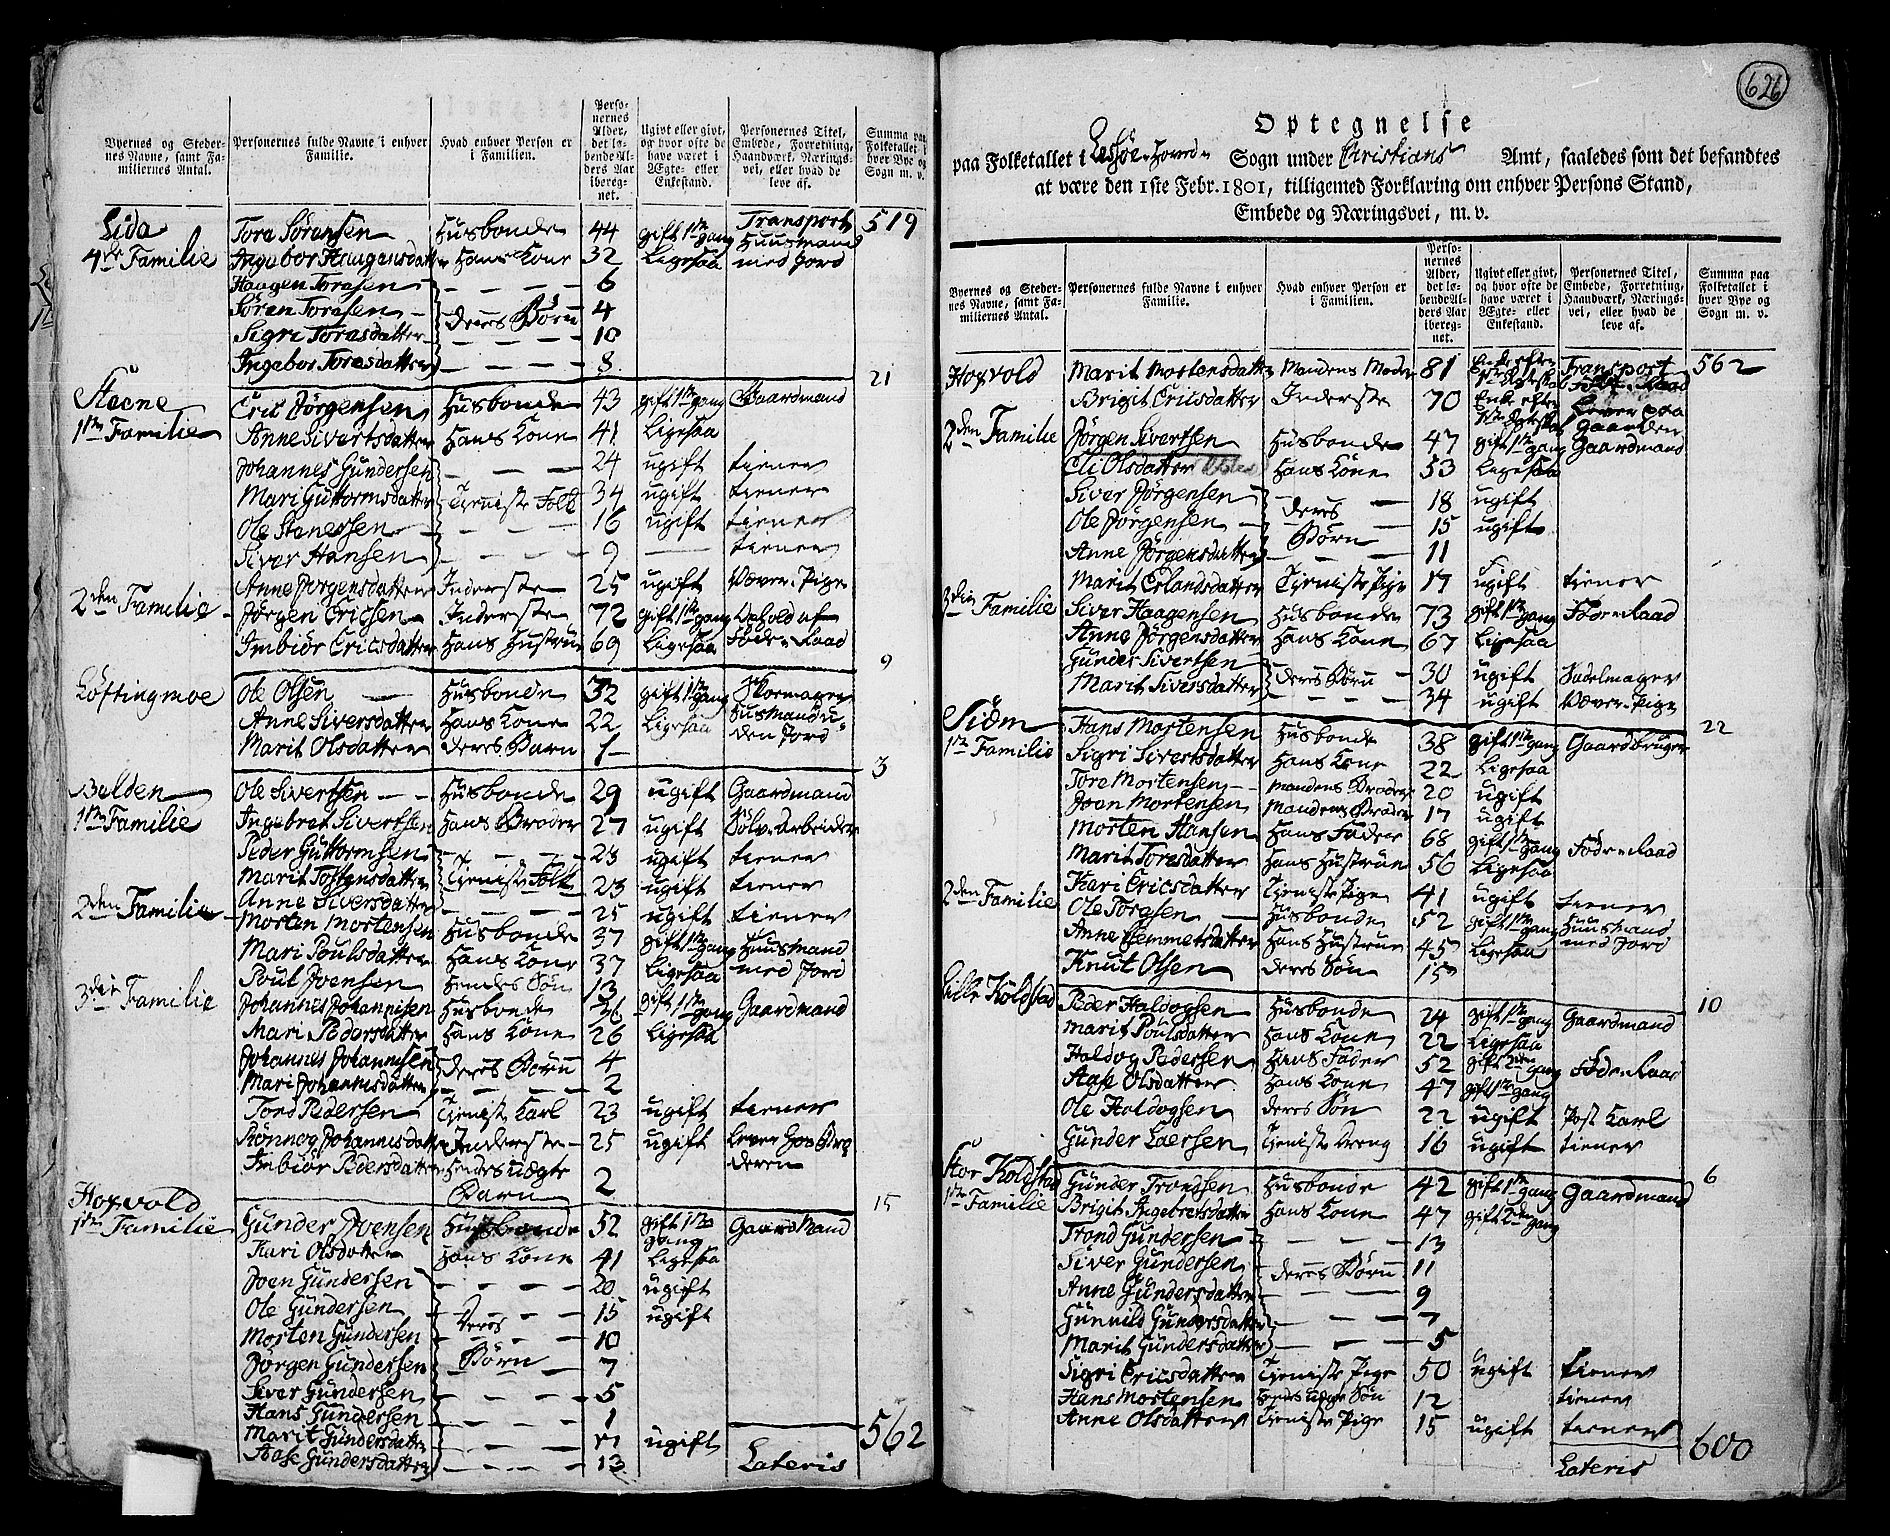 Byernes og Stedernes Navne, samt Familiernes Antal. | Personernes fulde Navne i enhver Familie. | Hvad enhver Person er i Familien. | Personernes Alder, det løbende Alders Aar iberegnet. | Ugivt eller givt, og hvor ofte de have været i Ægte- eller Enkestand. | Personernes Titel, Embede, Forretning, Haandværk, Næringsvei, eller hvad de leve af. | Summa paa Folketallet i hver Bye og Sogn m. v.
Lida | Tora Sörensen | Husbonde | 44 | gift 1ste gang | Transport | 519
4de Familie | Ingebor Haagensdatter | Hans Kone | 32 | Ligesaa | Huusmand med Jord
Haagen Torasen | 6
Sören Torasen | deres Börn | 4
Sigri Torasdatter | 10
Ingebor Torasdatter | 8
21
Steene | Eric Jörgensen | Husbonde | 43 | gift 1ste gang | Gaardmand
1ste Familie | Anne Sivertsdatter | Hans Kone | 41 | Ligesaa
Johannes Gundersen | 24 | ugift | tiener
Mari Guttormsdatter | Tieniste Folk | 34 | ugift | tiener
Ole Stenersen | 16 | ugift | tiener
Siver Hansen | 9 | tiener
Anne Jörgensdatter | Inderste | 25 | ugift | Væver-Pige
2den Familie | Jörgen Ericsen | Inderste | 72 | gift 1ste gang | Ophold af
Imbiör Ericsdatter | Hans Hustrue | 69 | Ligesaa | Föde-Raad
9
Löftingmoe | Ole Olsen | Husbonde | 32 | gift 1ste gang | Skomager
Anne Siversdatter | Hans Kone | 22 | Ligesaa | Husmand u-
Marit Olsdatter | deres Barn | 1 | den Jord
3
Belden | Ole Sivertsen | Husbonde | 29 | ugift | Gaardmand
1ste Familie | Ingebret Sivertsen | Hans Broder | 27 | ugift | Sölvarbeider
Peder Guttormsen | 23 | ugift | tiener
Marit Tostensdatter | Tieniste Folk | 23 | ugift | tiener
Anne Siversdatter | 25 | ugift | tiener
2den Familie | Morten Mortensen | Husbonde | 37 | gift 1ste gang | Huusmand
Mari Poulsdatter | Hans Kone | 37 | Ligesaa | med Jord
Poul Joensen | Hendes Sön | 13
3die Familie | Johannes Johannisen | Husbonde | 36 | gift 1ste gang | Gaardmand
Mari Pedersdatter | Hans Kone | 26 | Ligesaa
Johannes Johannisen | deres Börn | 4
Mari Johannisdatter | 2
Tord Pedersen | Tieniste Karl | 23 | ugift | tiener
Rönnog Johannisdatter | Inderste | 25 | ugift | Lever hos Bro
Imbiör Pedersdatter | Hendes uægte Barn | 2 | deren
15
Hoxvold | Gunder Joensen | Husbonde | 52 | gift 1ste gang | Gaardmand
1ste Familie | Kari Olsdatter | Hans Kone | 41 | Ligesaa
Joen Gundersen | 20 | ugift
Ole Gundersen | Deres | 15 | ugift
Morten Gundersen | 10
Jörgen Gundersen | Börn | 7
Siver Gundersen | 5
Hans Gundersen | 1
Marit Gundersdatter | ugift
Aase Gundersdatter | 13
Lateris | 562
626
Optegnelse
paa Folketallet i Lessöe Hoved Sogn under Christians Amt, saaledes som det befandtes
at være den 1ste Febr. 1801, tilligemed Forklaring om enhver Persons Stand,
Embede og Næringsvei, m. v.
Byernes og Stedernes Navne, samt Familiernes Antal. | Personernes fulde Navne i enhver Familie. | Hvad enhver Person er i Familien. | Personernes Alder, det løbende Alders Aar iberegnet. | Ugivt eller givt, og hvor ofte de have været i Ægte- eller Enkestand. | Personernes Titel, Embede, Forretning, Haandværk, Næringsvei, eller hvad de leve af. | Summa paa Folketallet i hver Bye og Sogn m. v.
Hoxvold | Marit Mortensdatter | Mandens Moder | 81 | Enke efter 1ste Ægteskab | Transport Föde-Raad | 562
Brigit Ericsdatter | Inderste | 70 | Enke efter 1ste Ægteskab | Lever paa Gaarden
2den Familie | Jörgen Sivertsen | Husbonde | 47 | gift 1ste gang | Gaardmand
Eli Olsdatter | Hans Kone | 53 | Ligesaa
Siver Jörgensen | deres | 18 | ugift
Ole Jörgensen | Börn | 15 | ugift
Anne Jörgensdatter | 11
Marit Erlandsdatter | Tieniste Pige | 17 | ugift | tiener
3die Familie | Siver Haagensen | Husbonde | 73 | gift 1ste gang | Föde-Raad
Anne Jörgensdatter | Hans Kone | 67 | Ligesaa
Gunder Sivertsen | deres Börn | 30 | ugift | Sadelmager
Marit Siversdatter | 34 | ugift | Væver-Pige
22
Siöm | Hans Mortensen | Husbonde | 38 | gift 1ste gang | Gaardbruger
1ste Familie | Sigri Sivertsdatter | Hans Kone | 22 | Ligesaa
Tore Mortensen | Mandens Broder | 20 | ugift
Joen Mortensen | Mandens Broder | 17 | ugift
Morten Hansen | Hans Fader | 68 | gift 1ste gang | Föde-Raad
Marit Toresdatter | Hans Hustrue | 56 | Ligesaa
Kari Ericsdatter | Tieniste Pige | 41 | ugift | tiener
2den Familie | Ole Torgsen | Husbonde | 52 | gift 1ste gang | Huusmand
Anne Jemmetsdatter | Hans Hustrue | 45 | Ligesaa | med Jord
Knut Olsen | deres Sön | 15
10
Lille Koldstad | Peder Haldogsen | Husbonde | 24 | gift 1ste gang | Gaardmand
Marit Poulsdatter | Hans Kone | 22 | Ligesaa
Haldog Pedersen | Hans Fader | 52 | gift 2den gang | Föde-Raad
Aase Olsdatter | Hans Kone | 47 | gift 1ste gang
Ole Haldogsen | deres Sön | 22 | ugift | Post Karl
Gunder Laersen | Tieniste Dreng | 16 | ugift | tiener
6
Stor Koldstad | Gunder Trondsen | Husbonde | 42 | gift 1ste gang | Gaardmand
1ste Familie | Brigit Ingebretsdatter | Hans Kone | 47 | gift 2den gang
Trond Gundersen | 13
Siver Gundersen | deres Börn | 11
Anne Gundersdatter | 9
Gunnild Gundersdatter | 7
Marit Gundersdatter | 5
Sigri Ericsdatter | Tieniste Pige | 50 | ugift | tiener
Hans Mortensen | Hendes uægte Sön | 12 | tiener
Anne Olsdatter | Tieniste Pige | 15 | ugift | tiener
Lateris | 600